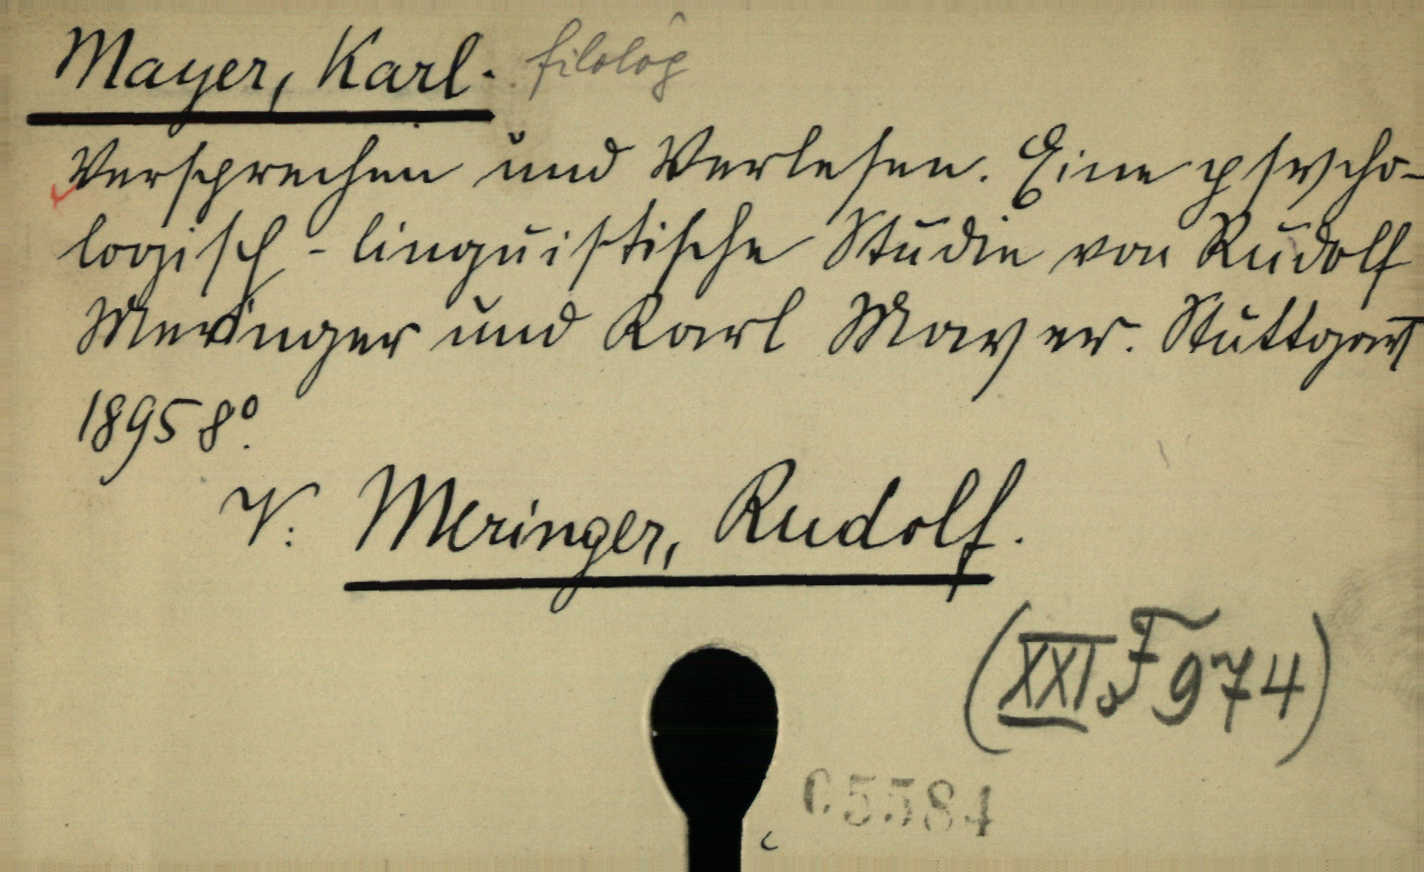 Mayer, Karl. filolog
Versprechen und Verlesen. Eine psycho-
logisch-linguistische Studie von Rudolf
Meringer und Karl Mayer. Stuttgart
1895 8°.
V: Meringer, Rudolf.
(XXI. F 974)
05584